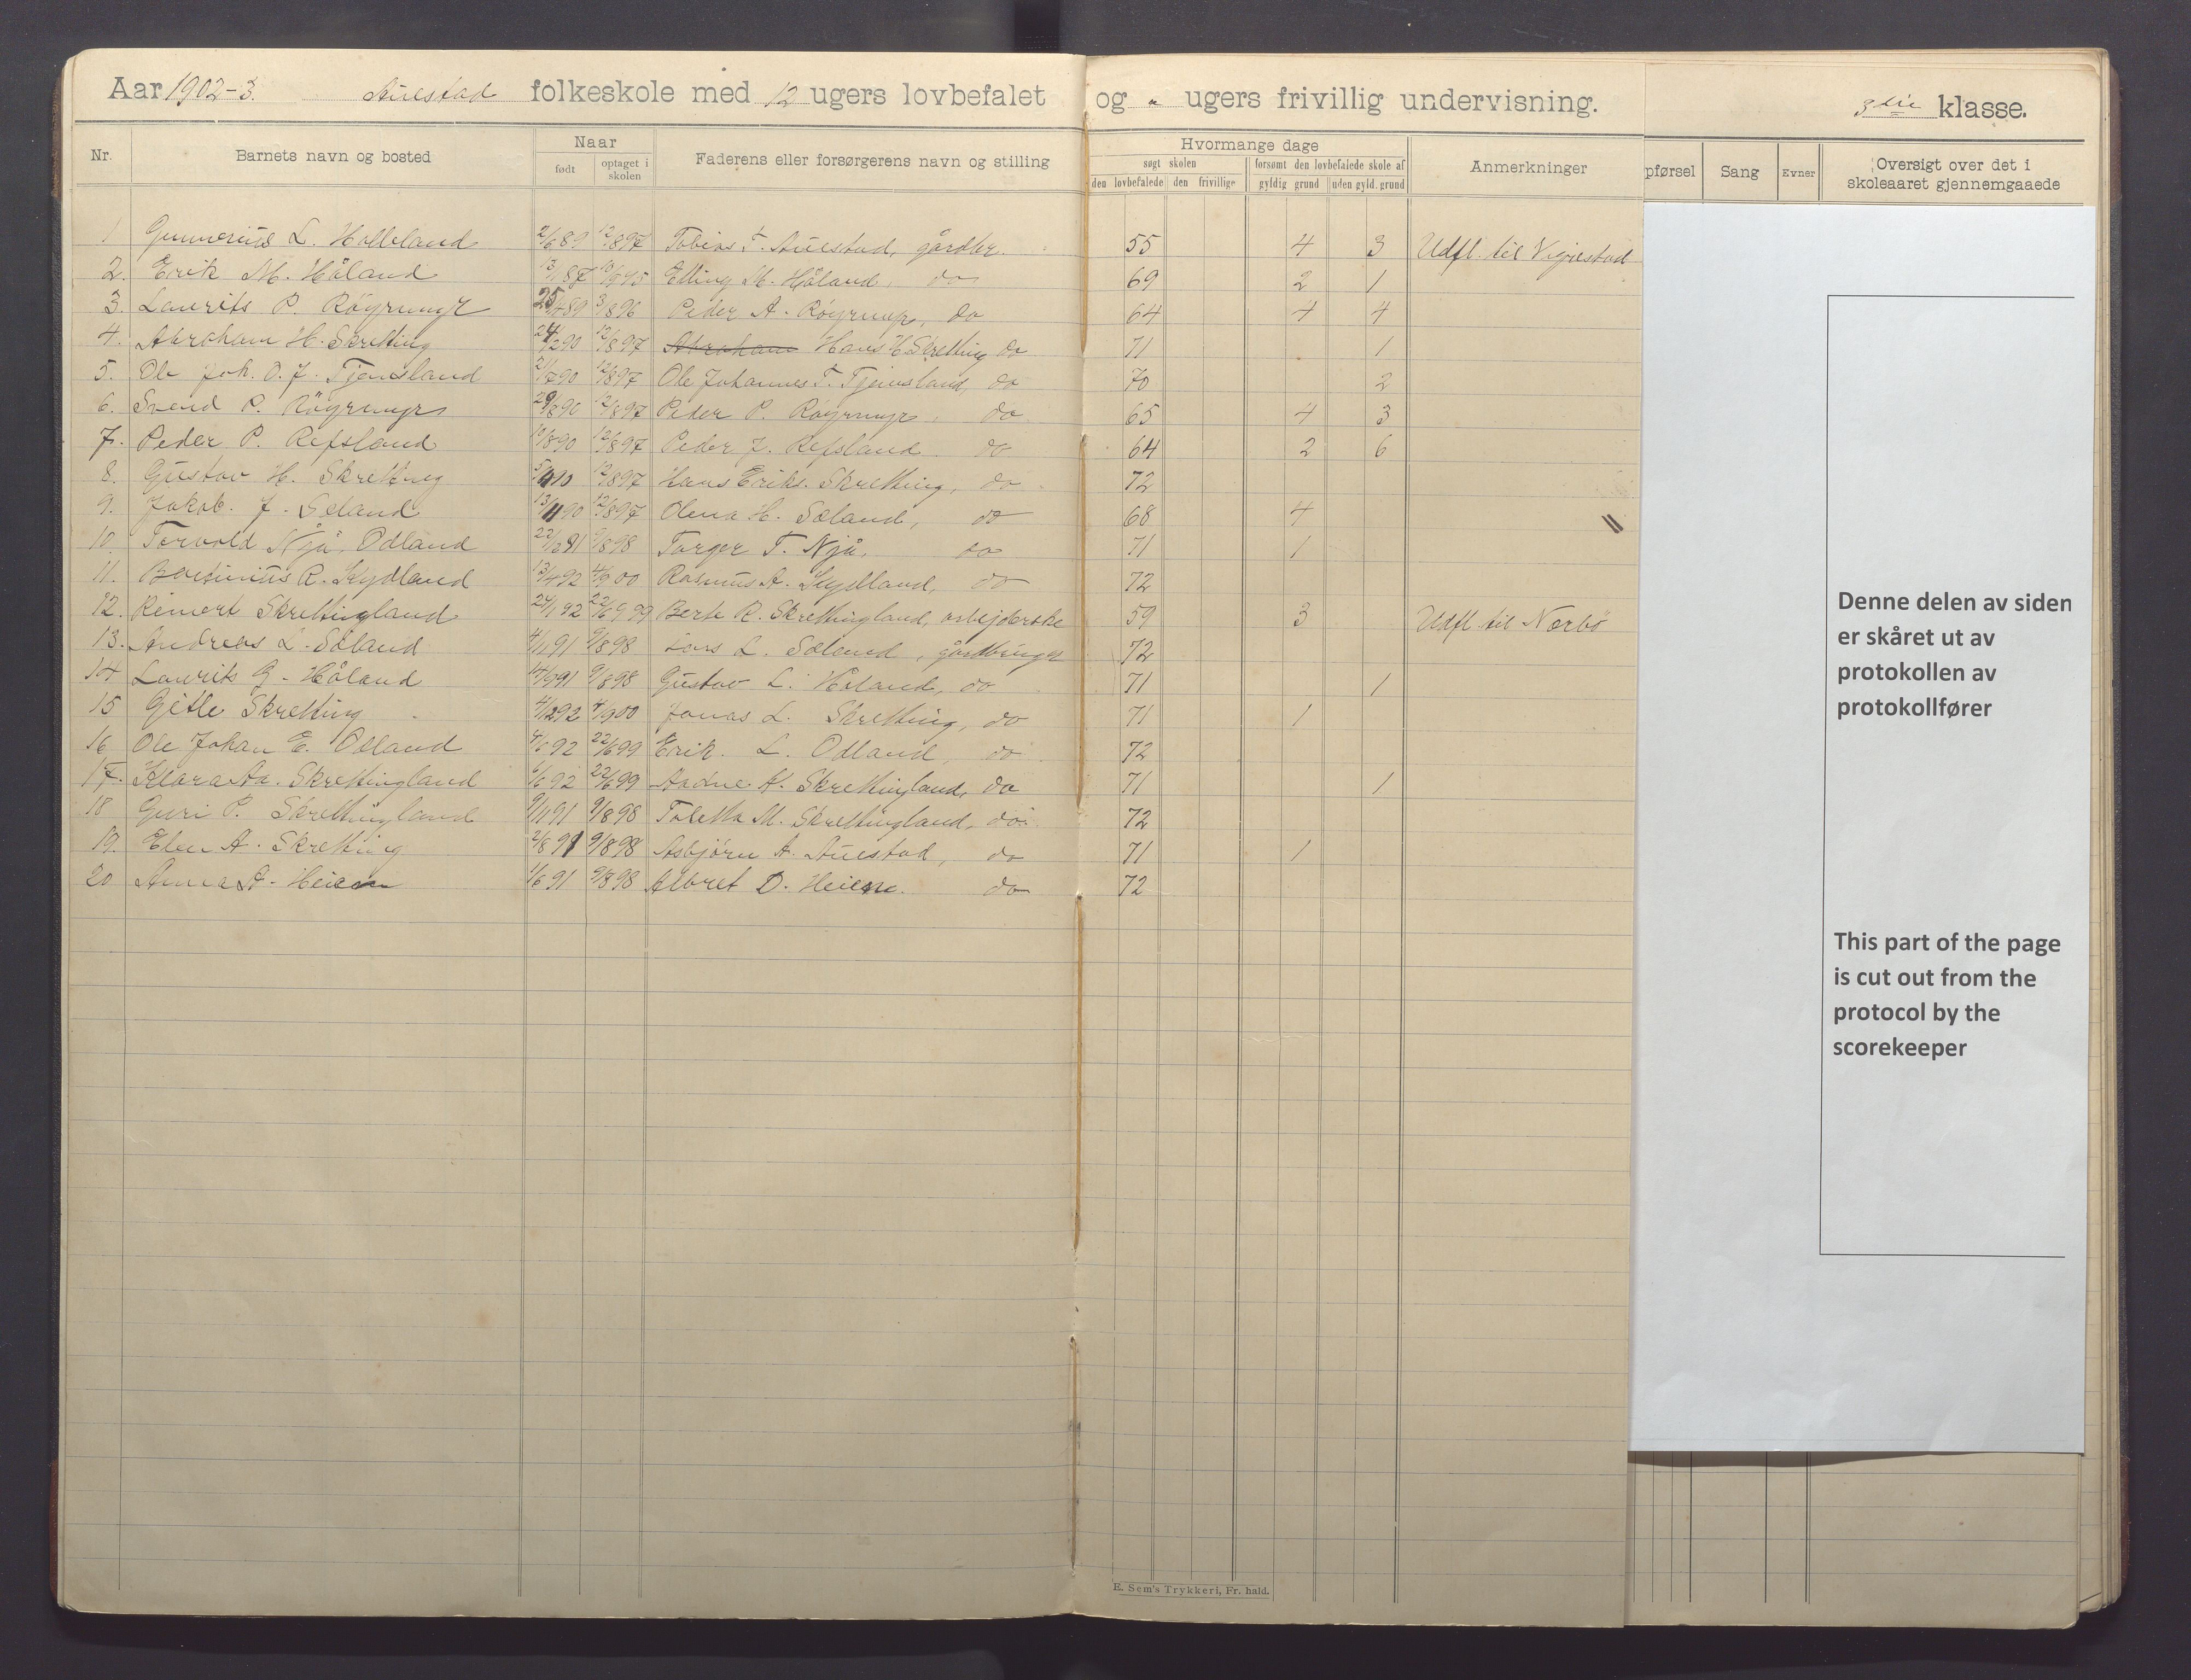 Aar 1902-3. Auestad folkeskole med 12 ugers lovbefalet og " ugers frivillig undervisning. 3die klasse.
Nr. Barnets navn og bosted Naar født optaget i skolen Faderens eller forsørgerens navn og stilling Hvormange dage søgt skolen den lovbefalede den frivillige forsømt den lovbefalede skole af gyldig grund uden gyld. grund Anmerkninger pførsel Sang Evner Oversigt over det i skoleaaret gjennemgaaede
1 Gunnerius L. Holleland 2/6 89 12/8 97 Tobias T. Auestad, gårdbr. 55 4 3 Udfl. til Vigrestad
2. Erik M. Håland 13/1 87 Elling M. Håland, do 69 2 1
3. Laurits P. Röyrmyr 25/4 89 3/8 96 Peder A. Röyrmyr, do 64 4 4
4. Abraham H. Skretting 24/2 90 12/8 97 Abraham Hans H Skretting do 71 1
5. Ole Joh. O. J. Tjemsland 2/7 90 12/8 97 Ole Johannes T. Tjemsland, do 70 2
6. Svend P. Röyrmyr 29/8 90 12/8 97 Peder P. Röyrmyr, do 65 4 3
7. Peder P. Refsland 10/8 90 12/8 97 Peder J. Refsland do 64 2 6
8. Gustav H. Skretting 12/8 97 Hans Eriks. Skretting, do 72
9. Jakob. J. Sæland 13/11 90 12/8 97 Olena H. Sæland, do 68 4
10. Torvold Njå, Odland 22/2 91 9/8 98 Torger T. Njå, do 71 1
11. R. Kydland 13/4 92 4/9 00 Rasmus A. Kydland, do 72
12. Reinert Skrettingland 24/1 92 22/6 99 Berte R. Skrettingland, arbejderske 59 3 Udfl. til Nærbö
13. Andreas L. Sæland 4/1 91 9/8 98 Lars L. Sæland, gårdbruger 72
14 Laurits G. Håland 14/9 91 9/8 98 Gustav L. Håland, do 71 1
15 Gitle Skretting 4/12 92 4/9 00 Jonas L. Skretting, do 71 1
16 Ole Johan E. Odland 4/6 92 22/6 99 Erik L. Odland, do 72
17. Klara Aa. Skrettingland 6/6 92 22/6 99 Aadne K. Skrettingland, do 71 1
18 Guri P. Skrettingland 9/11 91 9/8 98 Toletta M. Skrettingland, do 72
19. Elen A. Skretting 2/8 91 9/8 98 Asbjörn A. Auestad, do 71 1
20 Anna A. Heien 1/6 91 9/8 98 Albret D. Heien. do 72
Denne delen av siden
er skåret ut av
protokollen av
protokollfører
This part of the page
is cut out from the
protocol by the
scorekeeper
E. Sem's Trykkeri, Fr. hald.